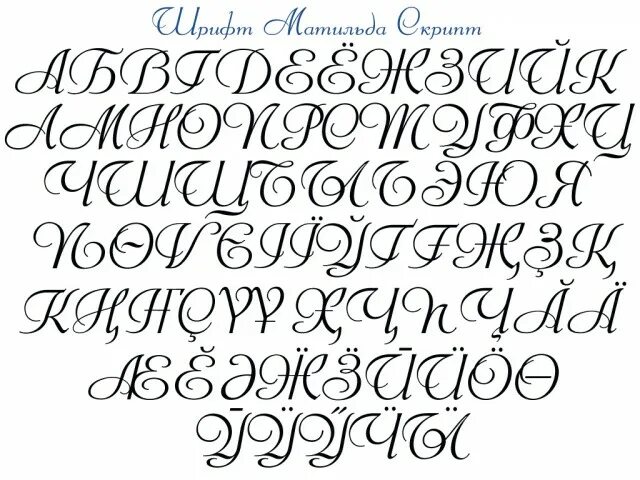 Шрифт Матильда Скрипт
АБВГДЕЁЖЗИЙК
ЛМНОПРСТУФХЦ
ЧШЩЪЫЬЭЮЯ
ѢѲѴЄІЇЎҐҒҖҘҚ
КҢҤҪҮҰ ҲҶҺӋӐӒ
ӔӖӘӜӞӢӤӦӨ
ӮӰӲӴӸ